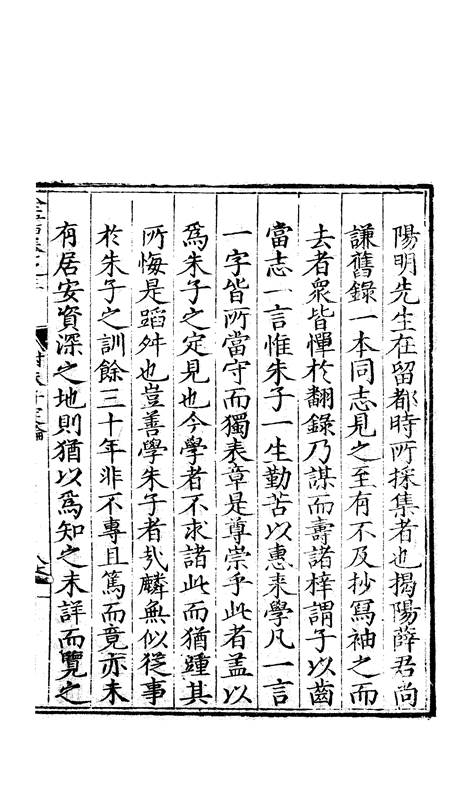 陽明先生在留都時所採集者也揭陽薛君尚
謙舊錄一本同志見之至有不及抄寫袖之而
去者衆皆憚於翻錄乃謀而壽諸梓謂子以齒
當志一言惟朱子一生勤苦以惠来學凡一言
一字皆所當守而獨表章是尊崇乎此者盖以
爲朱子之定見也今學者不求諸此而猶踵其
所悔是蹈舛也豈善學朱子者㢤麟無似從事
於朱子之訓餘三十年非不專且篤而竟亦未
有居安資深之地則猶以爲知之未詳而覽之